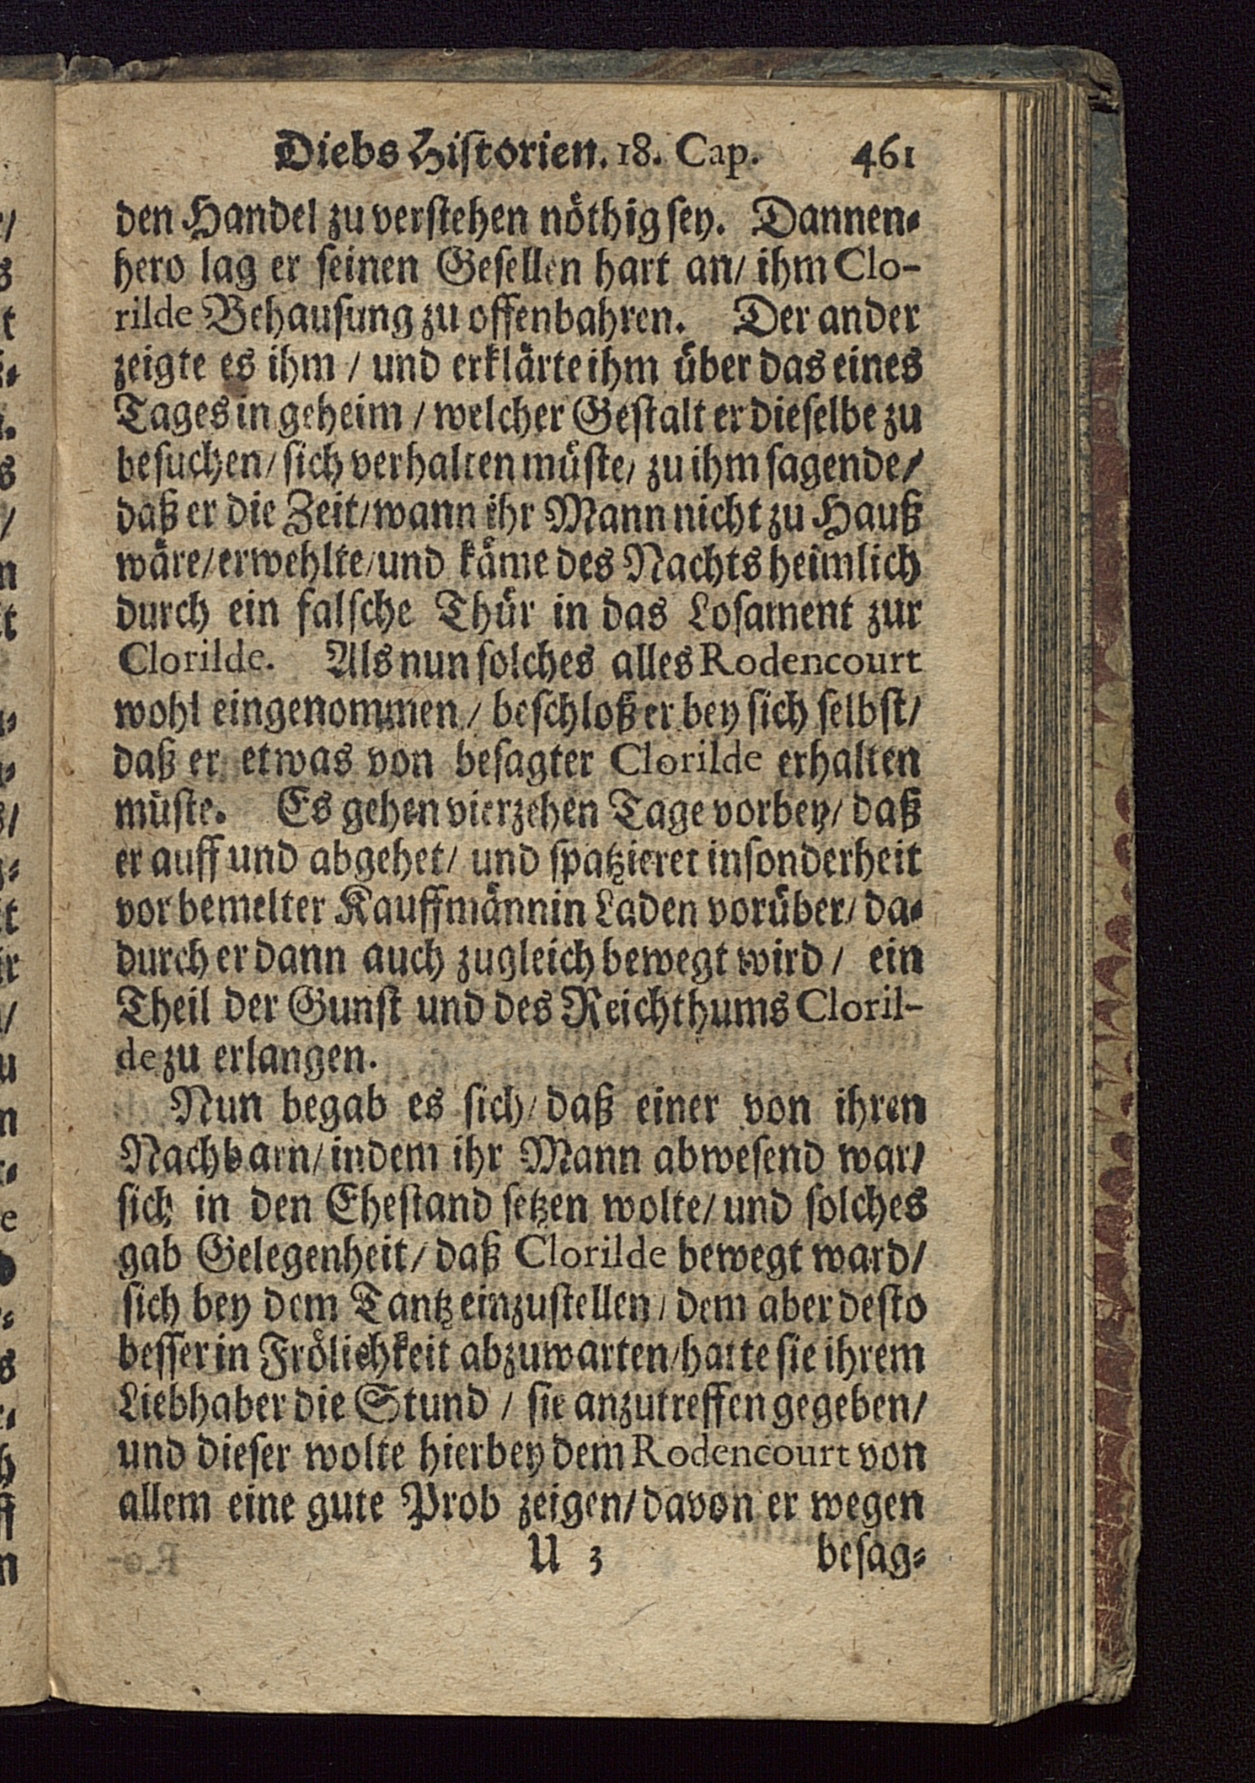 Diebs Historien. 18. Cap. 461
den Handel zu verstehen nöthig sey. Dannen-
hero lag er seinen Gesellen hart an/ ihm Clo-
rilde Behausung zu offenbahren. Der ander
zeigte es ihm / und erklärte ihm über das eines
Tages in geheim / welcher Gestalt er dieselbe zu
besuchen/ sich verhalten müste/ zu ihm sagende/
daß er die Zeit/wann ihr Mann nicht zu Hauß
wäre/erwehlte/und käme des Nachts heimlich
durch ein falsche Thür in das Losament zur
Clorilde. Als nun solches alles Rodencourt
wohl eingenommen / beschloß er bey sich selbst/
daß er etwas von besagter Clorilde erhalten
müste. Es gehen vierzehen Tage vorbey/ daß
er auff und abgehet/ und spatzieret insonderheit
vor bemelter Kauffmännin Laden vorüber/ da-
durch er dann auch zugleich bewegt wird / ein
Theil der Gunst und des Reichthums Cloril-
de zu erlangen.
Nun begab es sich/ daß einer von ihren
Nachbarn/ indem ihr Mann abwesend war/
sich in den Ehestand setzen wolte/ und solches
gab Gelegenheit/ daß Clorilde bewegt ward/
sich bey dem Tantz einzustellen/ dem aber desto
besser in Frölichkeit abzuwarten/hatte sie ihrem
Liebhaber die Stund / sie anzutreffen gegeben/
und dieser wolte hierbey dem Rodencourt von
allem eine gute Prob zeigen/ davon er wegen
U 3 besag-